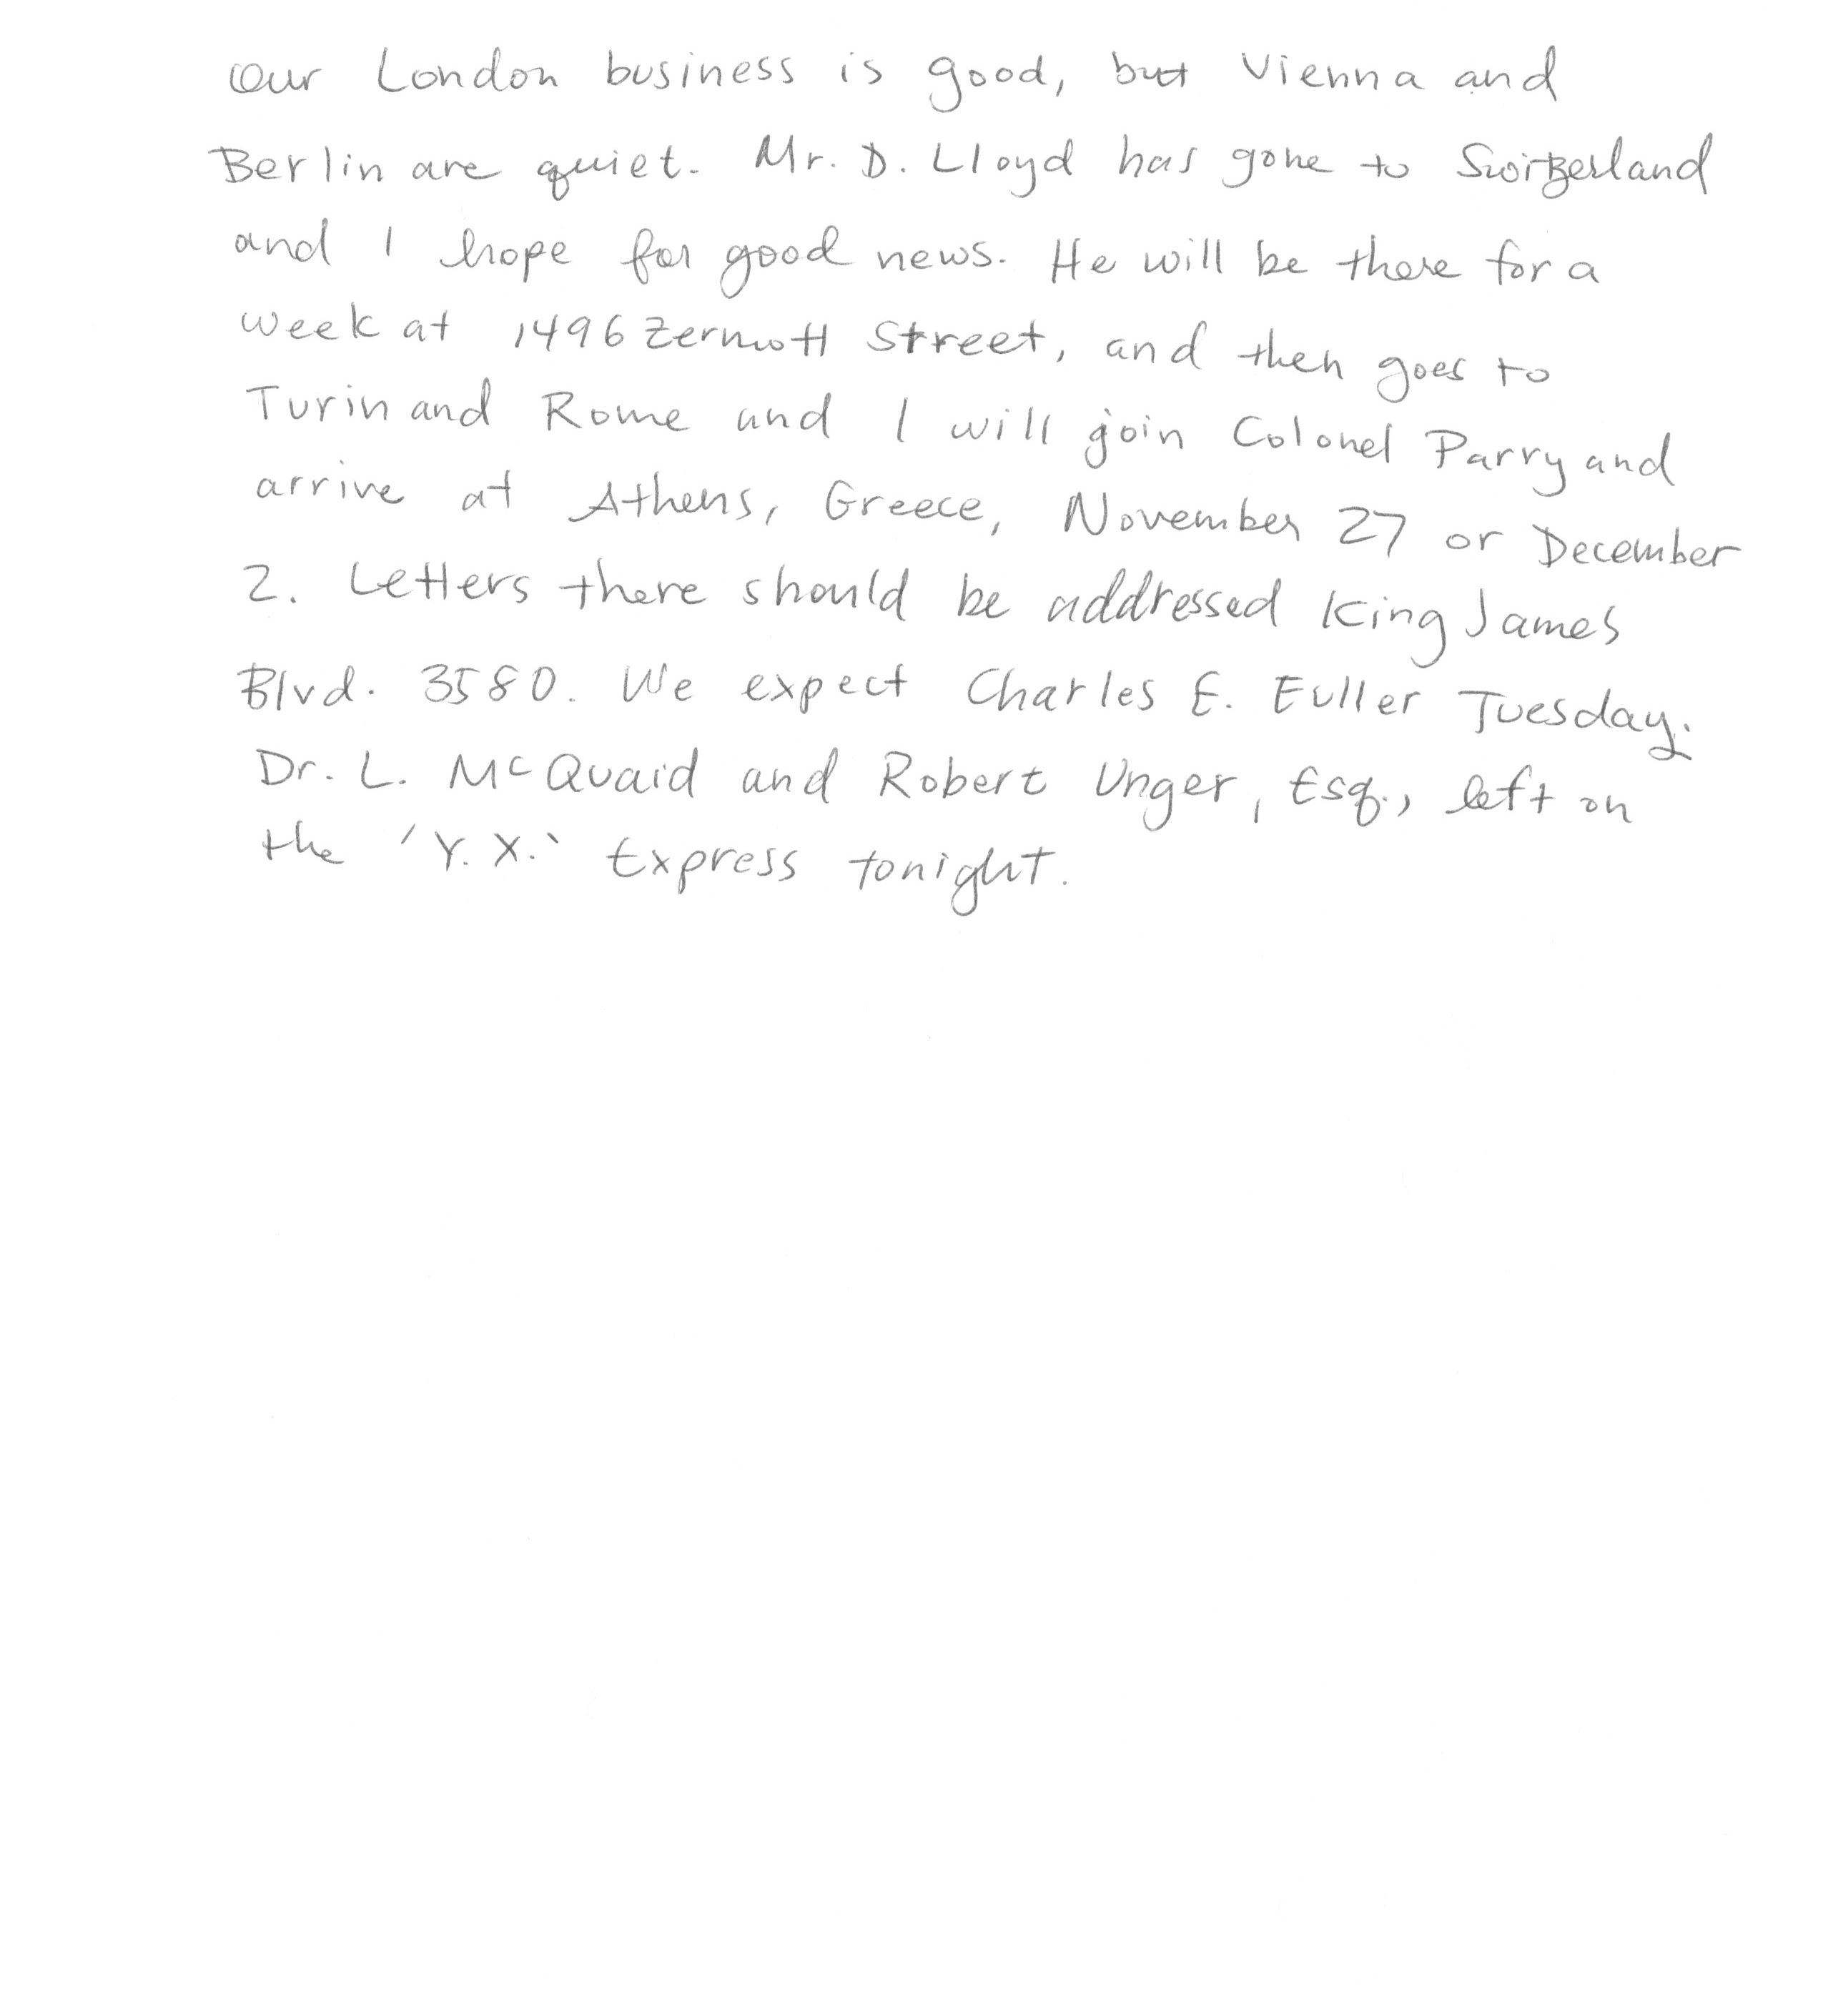 Our London business is good, but Vienna and
Berlin are quiet. Mr. D. Lloyd has gone to Switzerland
and I hope for good news. He will be there for a
week at 1496 Zermott Street, and then goes to
Turin and Rome and I will join Colonel Parry and
arrive at Athens, Greece, November 27 or December
2. Letters there should be addressed King James
Blvd. 3580. We expect Charles E. Fuller Tuesday.
Dr. L. McQuaid and Robert Unger, Esq., left on
the 'Y.X.' Express tonight.